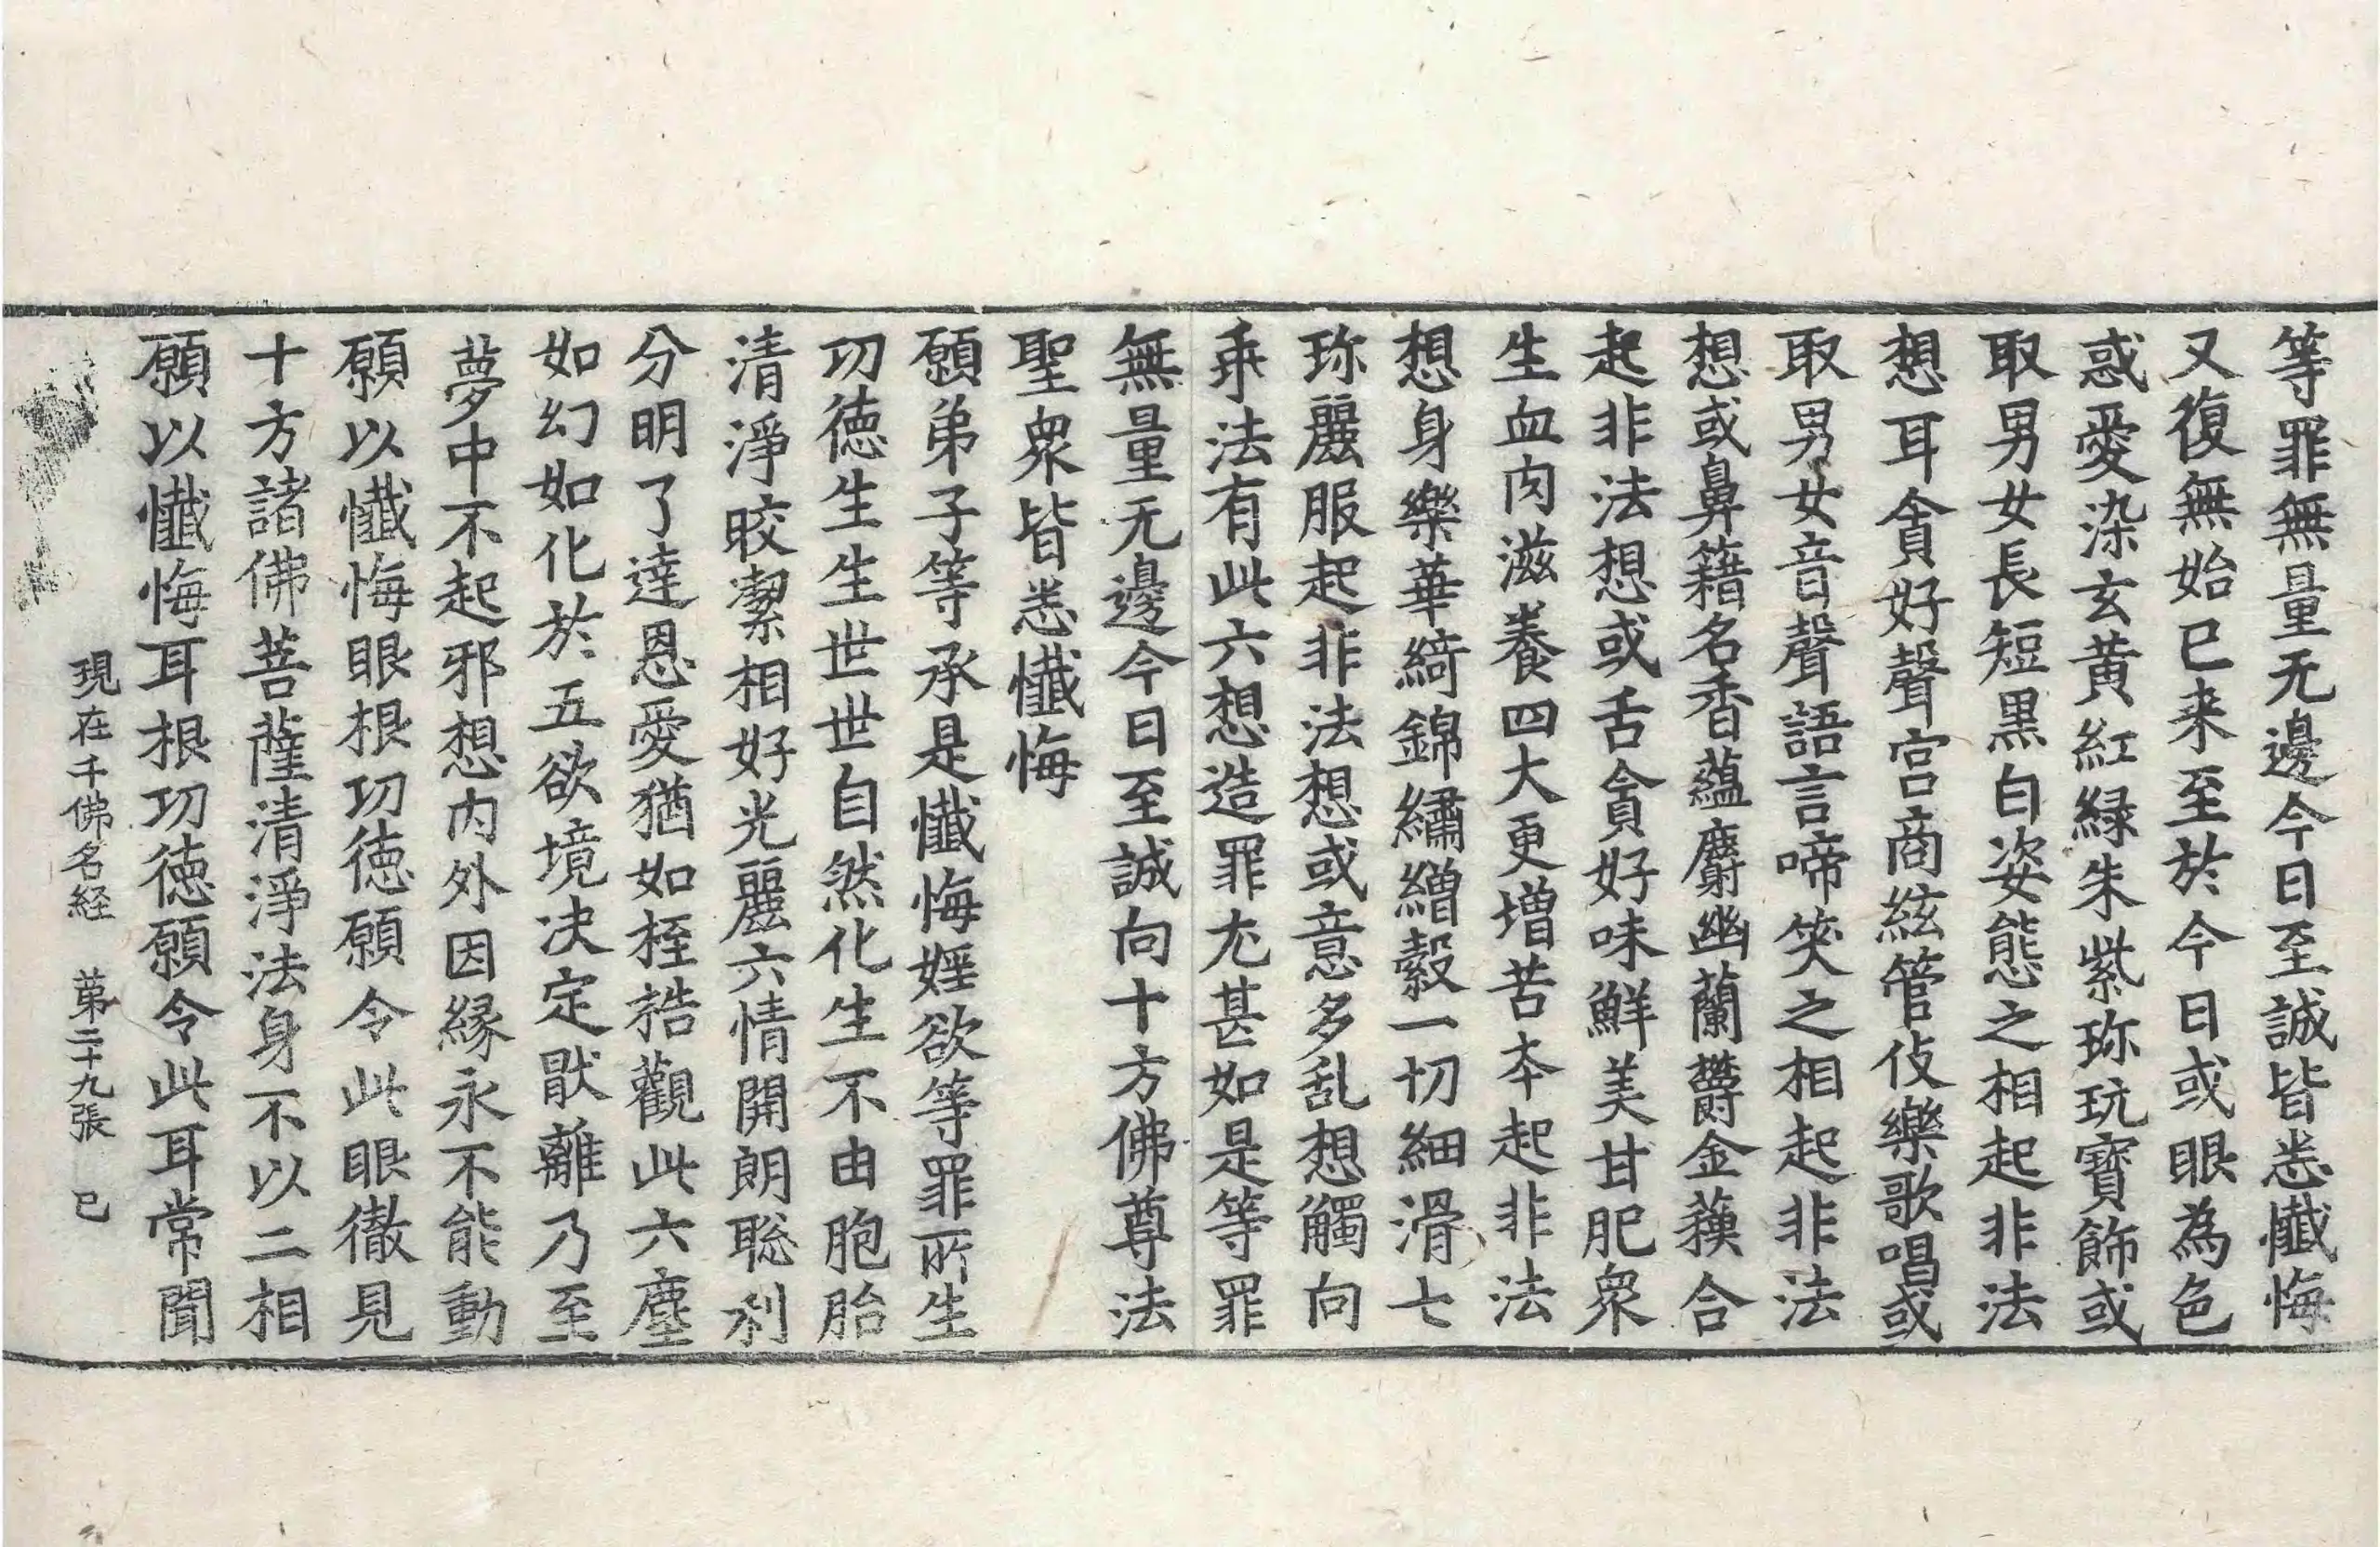 等罪無量无邊今日至誠皆悉懺悔
又復無始已来至於今日或眼為色
惑愛染玄黄紅緑朱紫珎玩寶飾或
取男女長短黒白姿態之相起非法
想耳貪好聲宮商絃管伎樂歌唱或
取男女音聲語言啼笑之相起非法
想或鼻籍名香蘊麝幽蘭欝金蘓合
起非法想或舌貪好味鮮美甘肥衆
生血肉滋養四大更增苦夲起非法
想身樂華綺錦繡繒縠一切細滑七
珎麗服起非法想或意多乱想觸向
乖法有此六想造罪尤甚如是等罪
無量无邊今日至誠向十方佛尊法
聖衆皆悉懺悔
願弟子等承是懺悔婬欲等罪所生
功徳生生世世自然化生不由胞胎
清淨皎潔相好光麗六情開朗聡利
分明了達恩愛猶如桎梏觀此六塵
如幻如化於五欲境决定猒離乃至
夢中不起邪想内外因縁永不能動
願以懺悔眼根功徳願令此眼徹見
十方諸佛菩薩清淨法身不以二相
願以懺悔耳根功徳願令此耳常聞
現在千佛名経 苐二十九張 巳